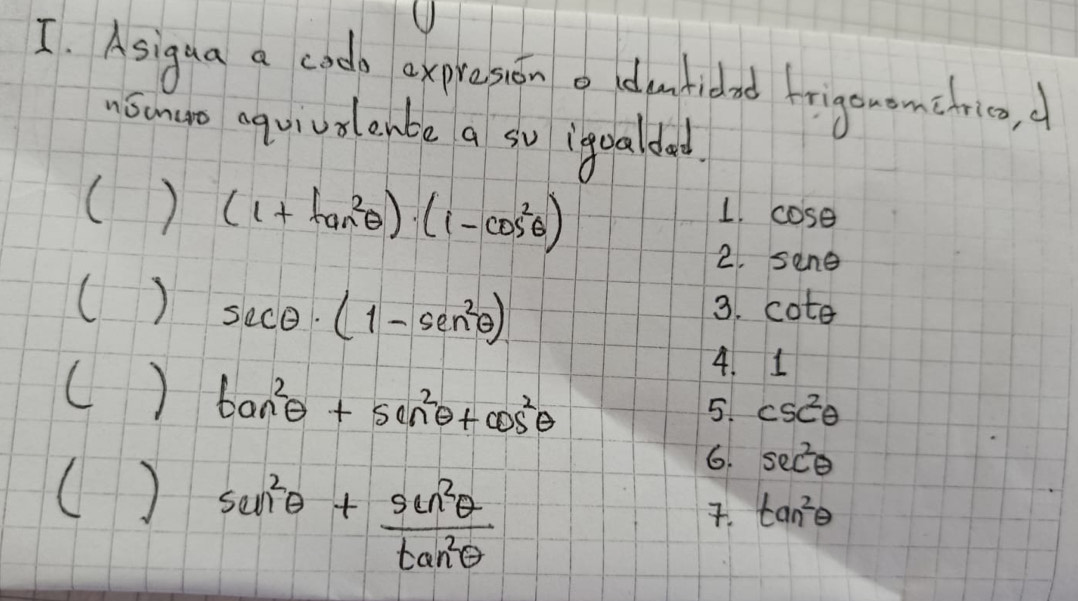 I. Asigna a cada expresión o identidad trigonométrica, el
número equivalente a su igualdad.
( ) (1 + tan²θ)·(1 - cos²θ)
( ) secθ·(1 - sen²θ)
( ) tan²θ + sen²θ + cos²θ
( ) sen²θ + sen²θ / tan²θ
1. cosθ
2. senθ
3. cotθ
4. 1
5. csc²θ
6. sec²θ
7. tan²θ